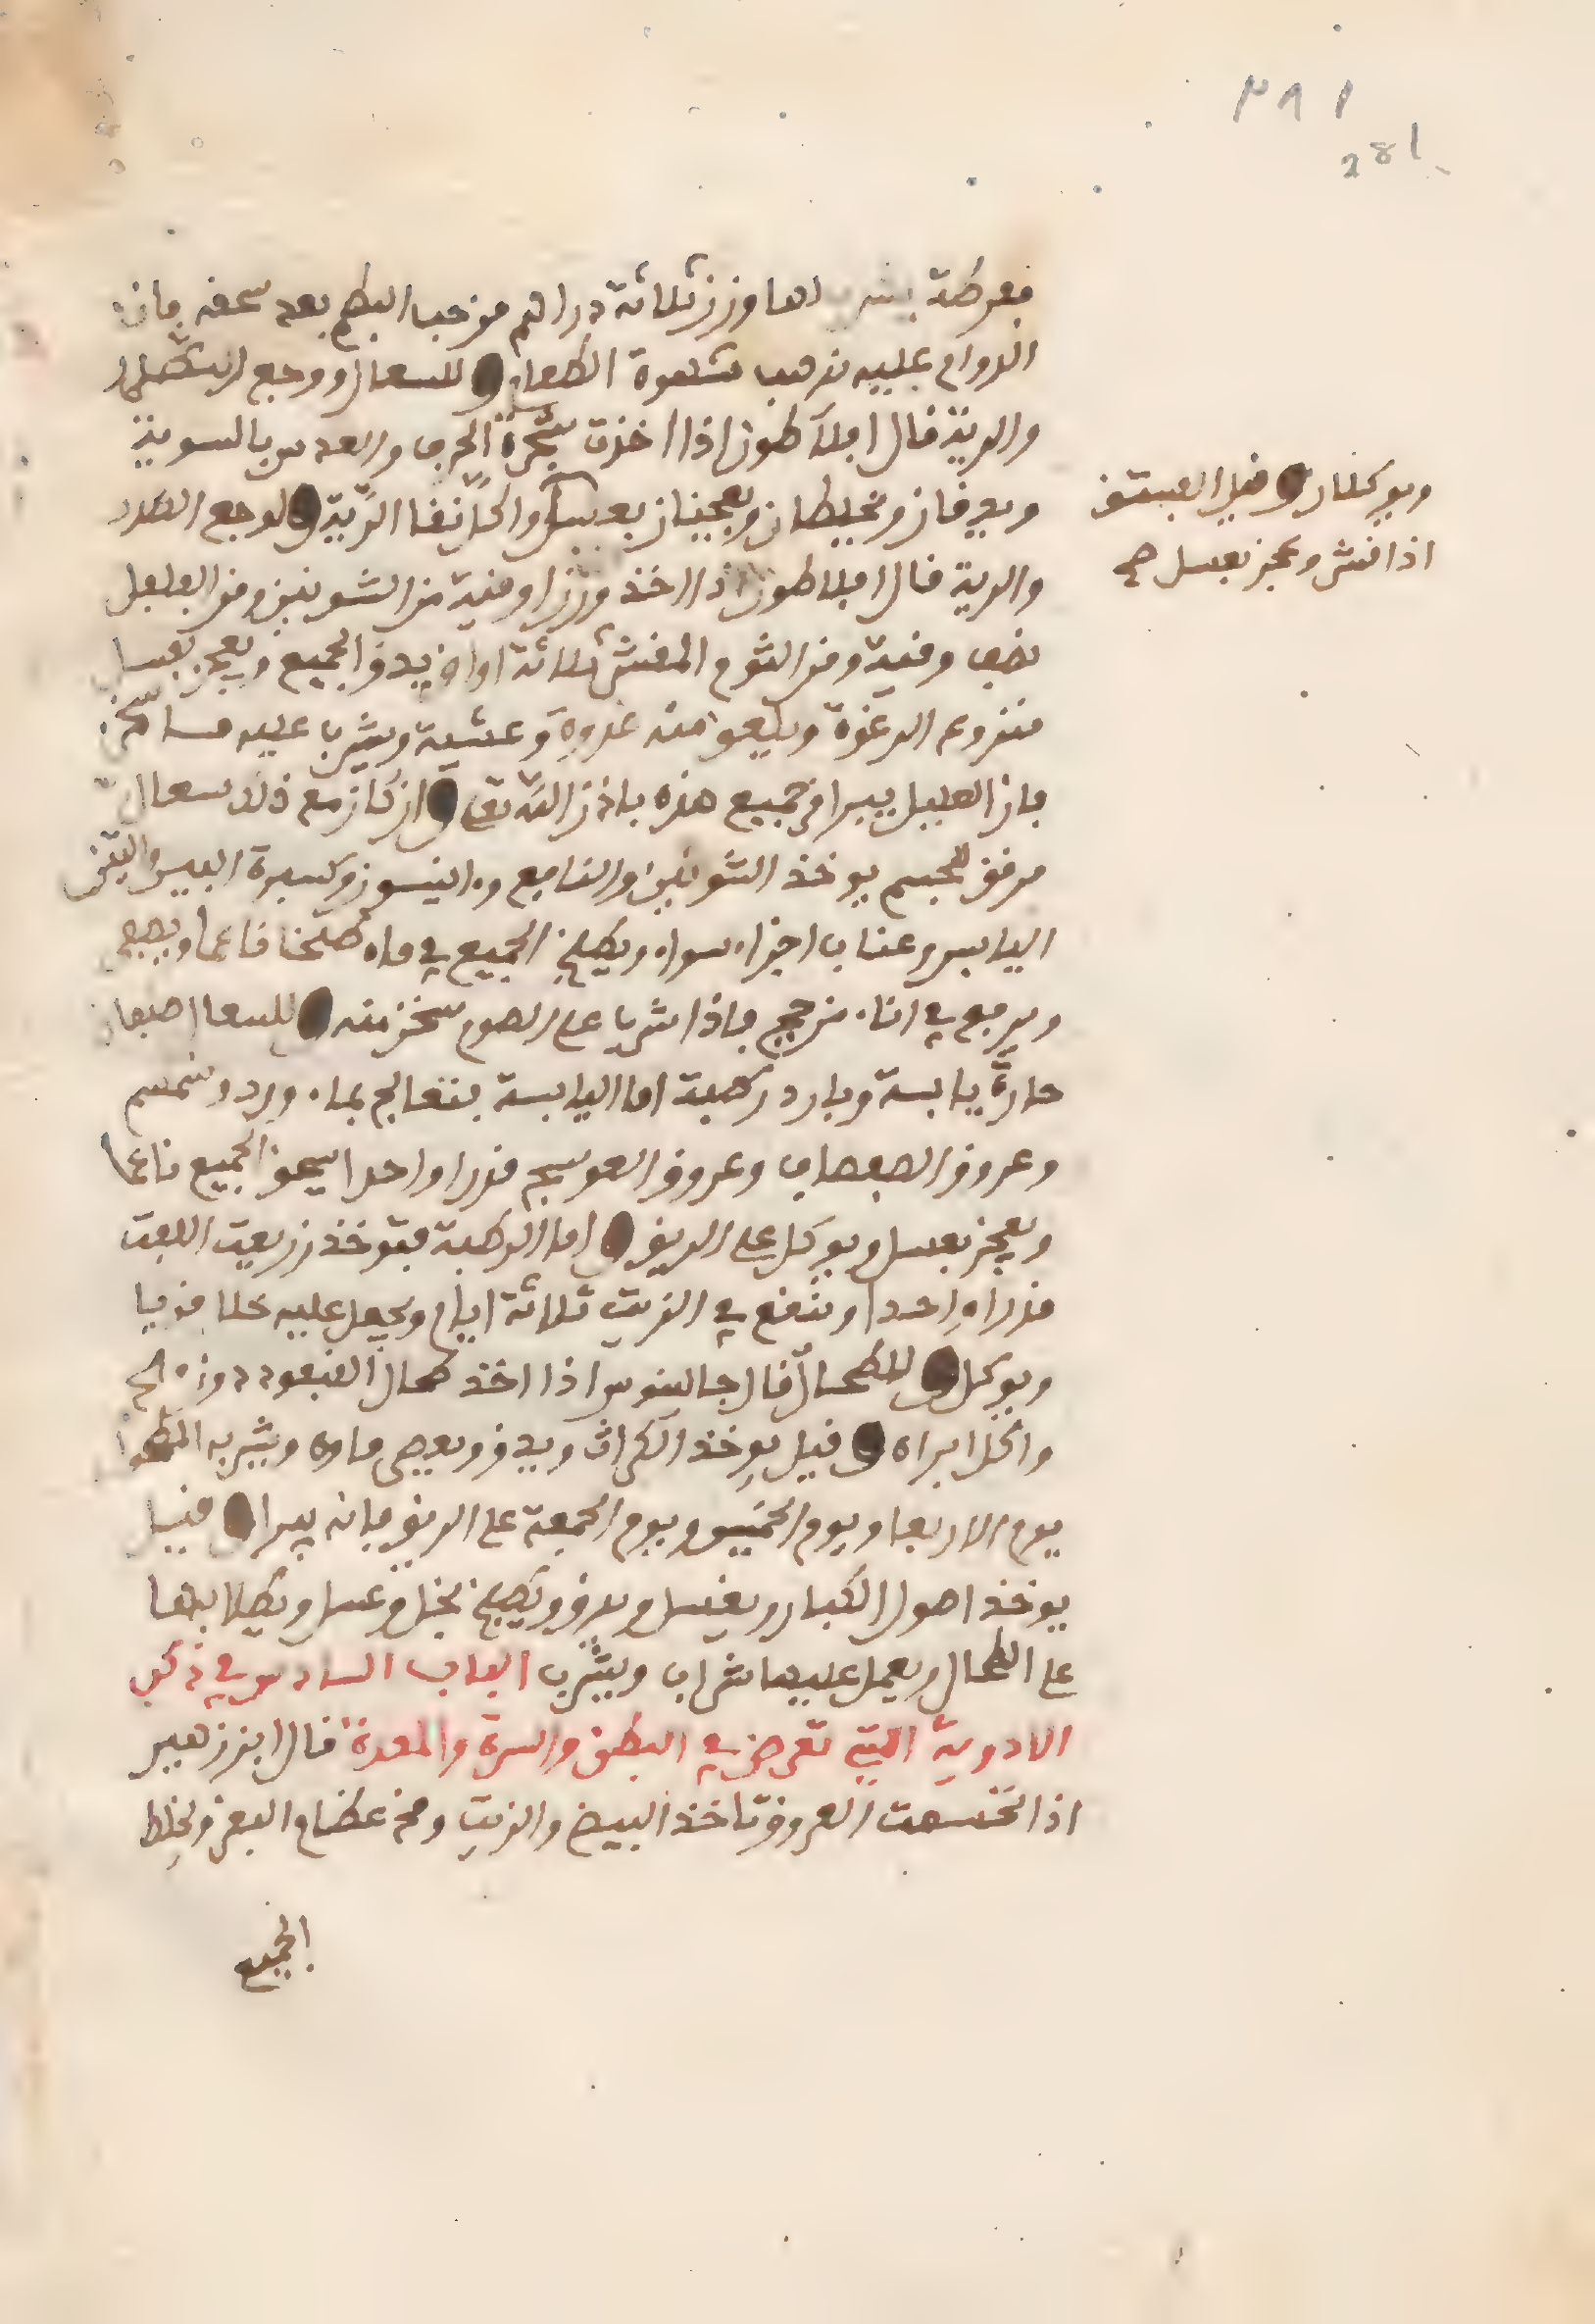 ٢٨١
281
مفرطة يشرب لها وزن ثلاثة دراهم من حب البطم بعد سحقه فان
الدوام عليه تذهب شهوة الطعام و للسعال ووجع
والرية قال افلاطون اذا اخذت شجرة الحرف والعدس بالسوية
ويدقان ويخلطان ويعجنان بعسل واكلا نقا الرية و لوجع الصدر
والرية قال افلاطون اذا اخذ وزن اوقية من الشونيز ومن الفلفل
نصف وقية ومن الثوم المقشر ثلاثة اواق يدق الجميع ويعجن بعسل
منزوع الرغوة ويلعق منه غدوة وعشية ويشرب عليه ما سخن
فان العليل يبرا من جميع هذه باذن الله تعلى و ان كان مع ذلك سعال
مرقق للجسم يوخذ الشونيز والنافع والينسون وكسبرة البير والتين
اليابس وعناب اجزاء سواء ويطبخ الجميع في ماء طبخا ناعما ويصفى
ويرفع في اناء زجج فاذا شرب على الصوم سخن منه و للسعال صنفان
حارة يابسة وبارد رطبة اما اليابسة فتعالج بماء ورد وسمسم
وعروق الصفصاف وعروق العوسج قدرا واحدا يسحق الجميع ناعما
ويعجن بعسل ويوكل على الريق و اما الرطبة فتوخذ زريعت اللفت
قدرا واحدا وتنقع في الزيت ثلاثة ايام ويجعل عليه خلا قويا
ويوكل و للطحال قال جالينوس اذا اخذ طحال القنفود
والخل ابراه و قيل يوخذ الكراث ويدق ويعصر ماوه ويشربه المطحول
يوم الاربعا ويوم الخميس ويوم الجمعة على الريق فانه يبرا و قيل
يوخذ اصول الكبار ويغسل ويدق ويطبخ بخل وعسل ويطلا بها
على الطحال ويعمل عليها شراب ويشرب الباب السادس في ذكر
الادوية التي تعرض في البطن والسرة والمعدة قال ابن زهير
اذا تخسعت العروق تاخذ البيض والزيت ومخ عظام البقر ويخلط
الجميع
ويوكلان و قيل الفستق
اذا قشر وعجن بعسل صح